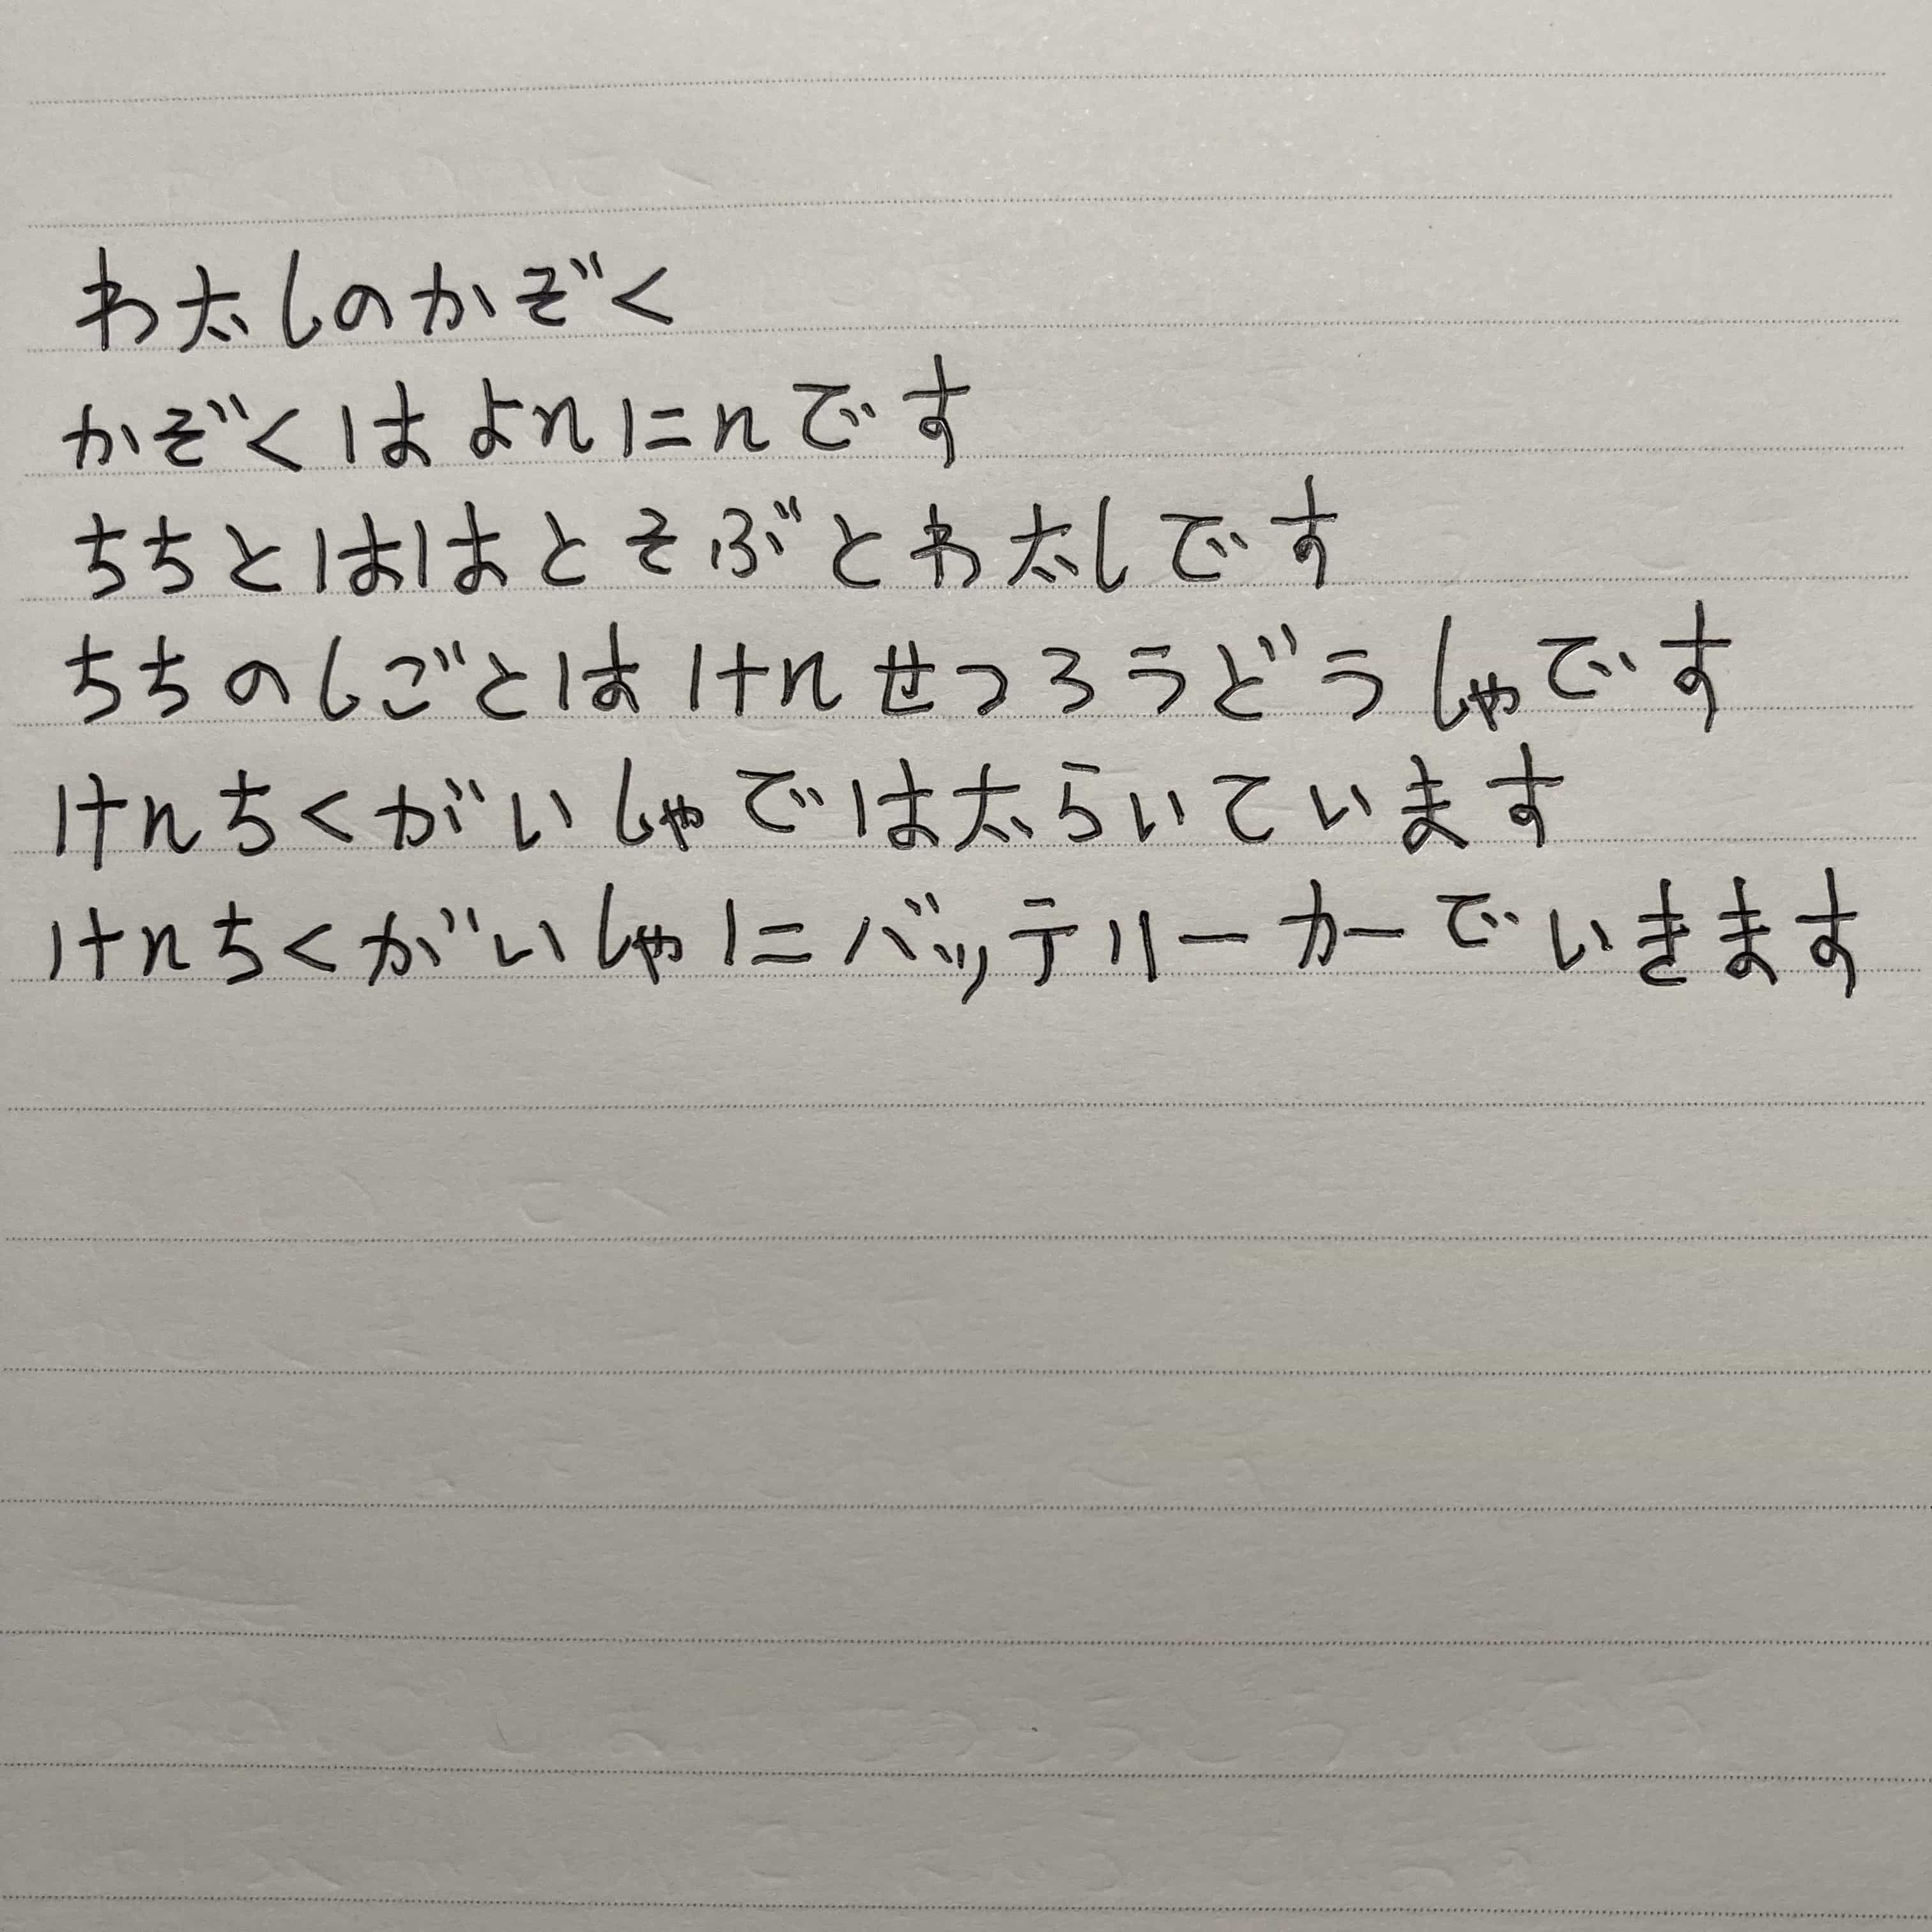 わ太しのかぞく
かぞくはよんにんです
ちちとははとそぶとわ太しです
ちちのしごとはけんせつろうどうしゃです
けんちくがいしゃでは太らいています
けんちくがいしゃにバッテリーカーでいきます